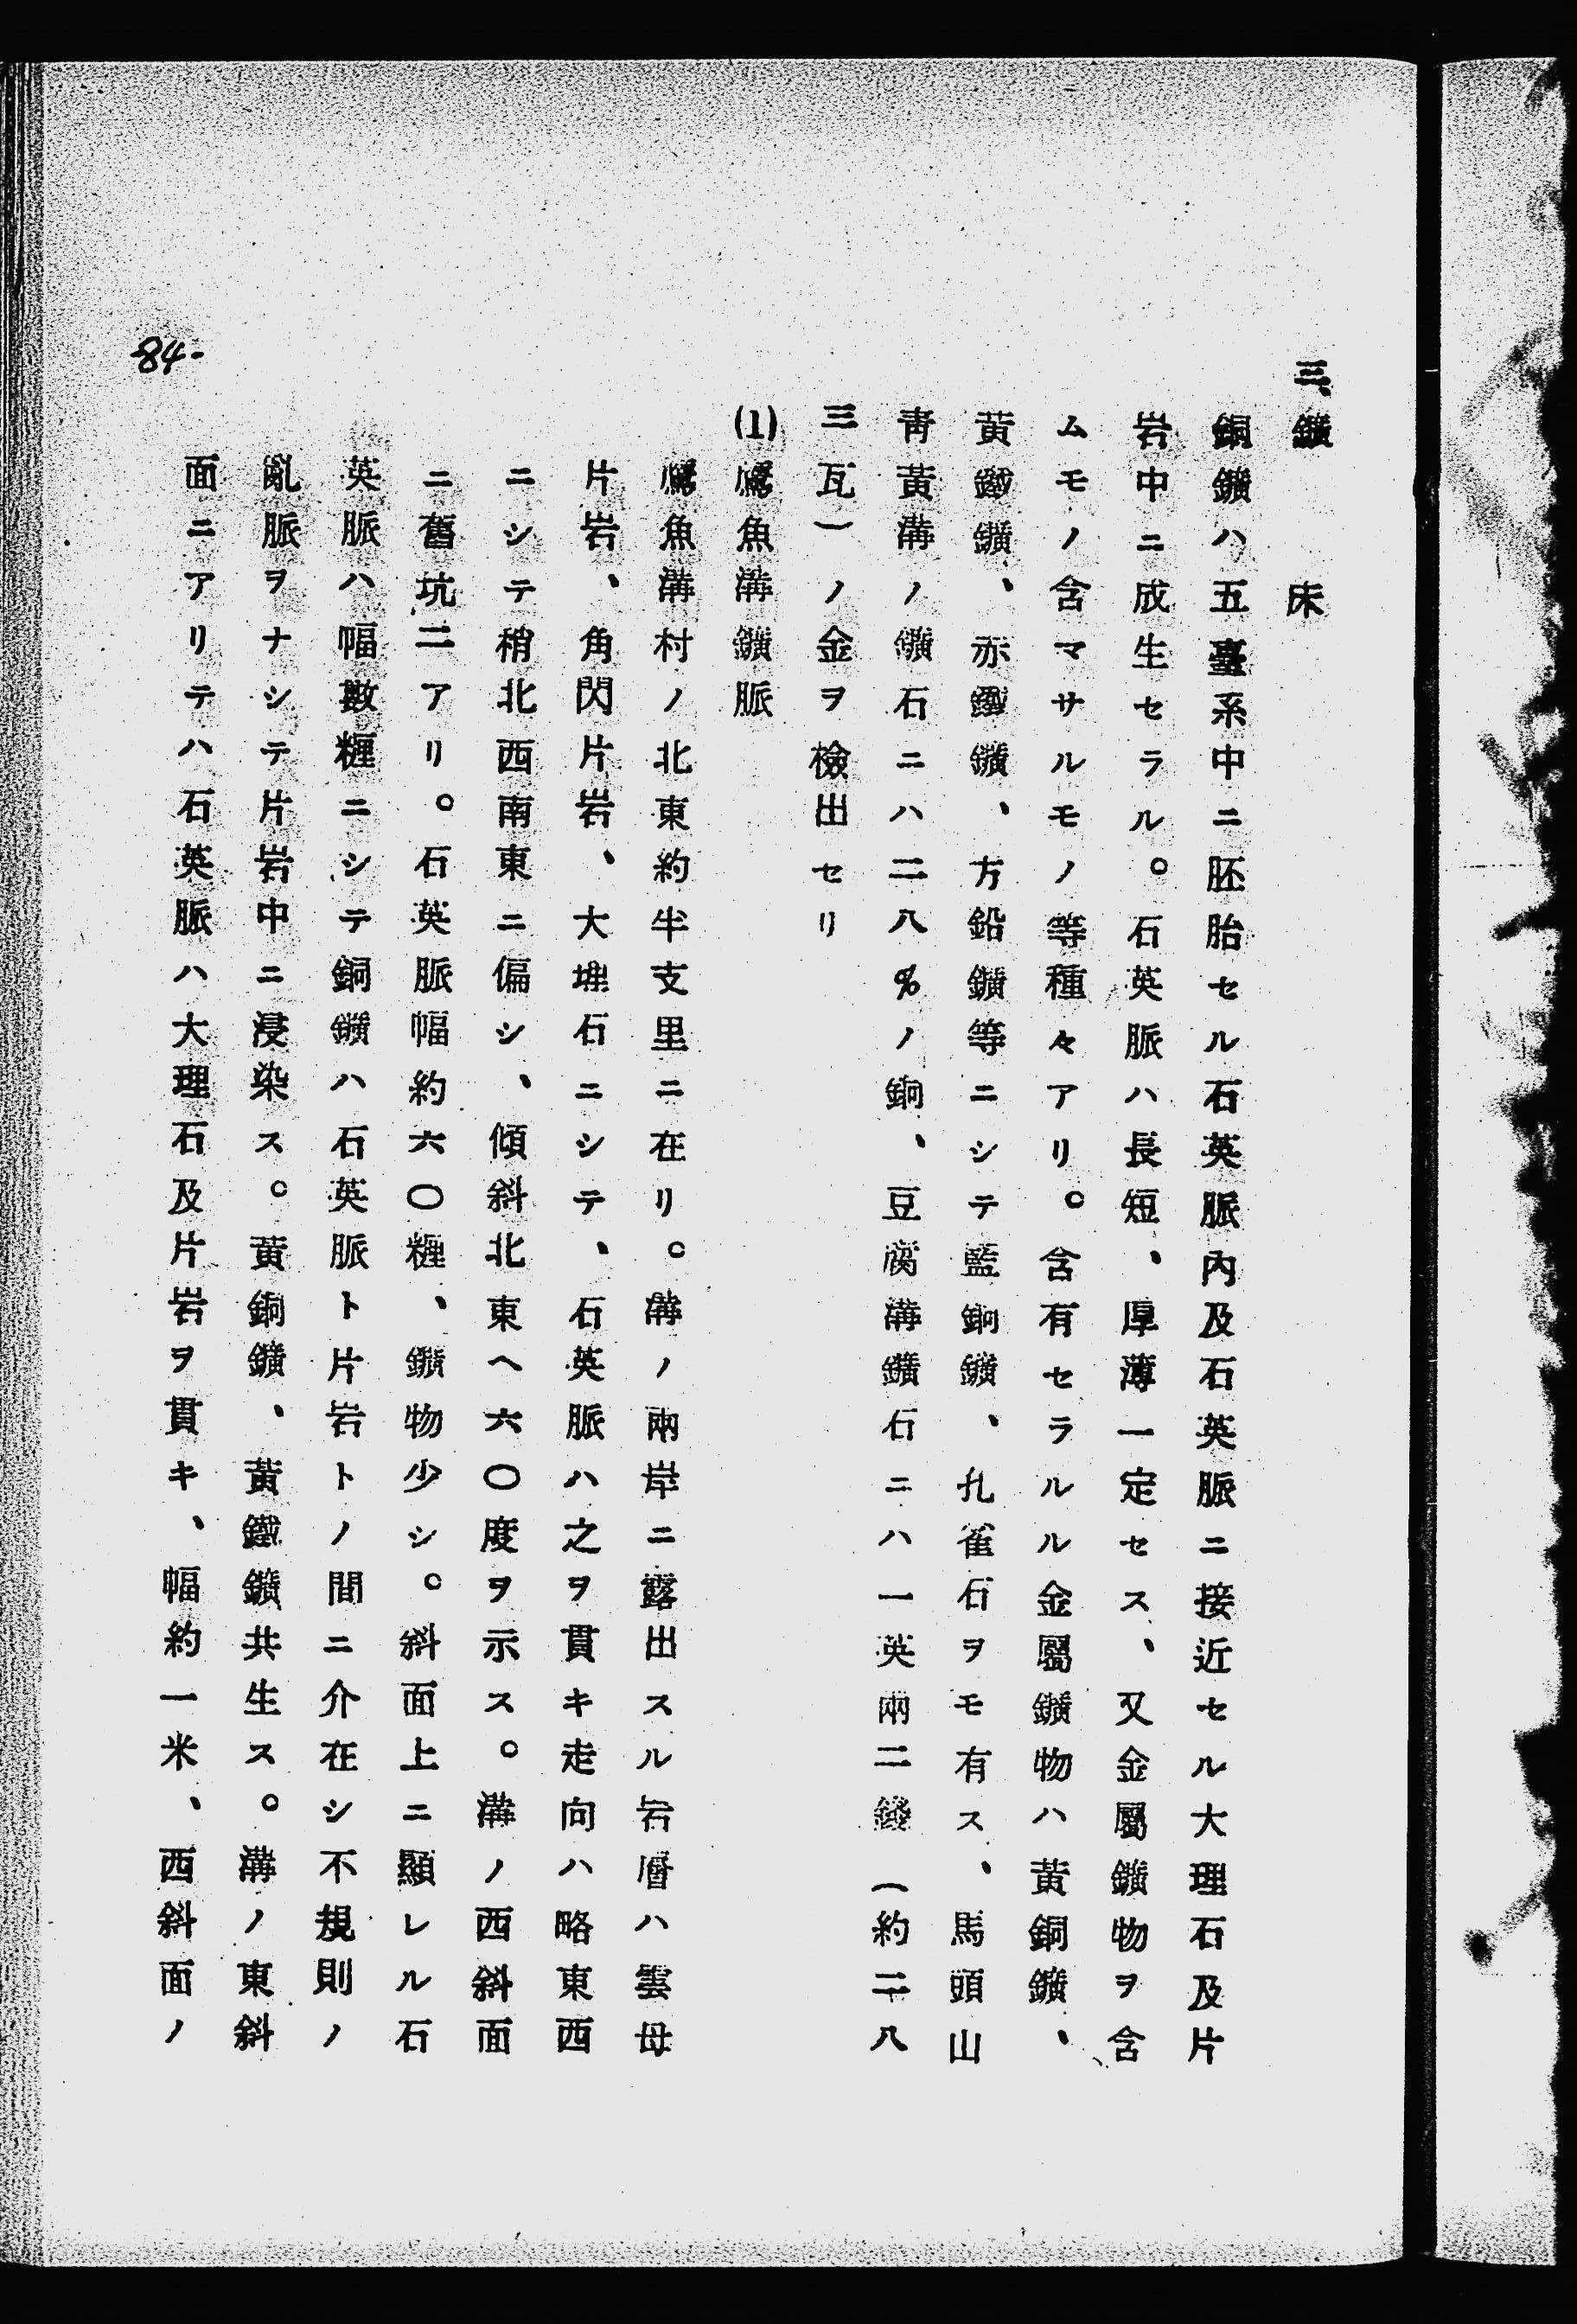 三、鑛床
銅鑛ハ五臺系中ニ胚胎セル石英脈內及石英脈ニ接近セル大理石及片
岩中ニ成生セラル。石英脈ハ長短、厚薄一定セス、又金屬鑛物ヲ含
ムモノ含マサルモノ等種々アリ。含有セラルル金屬鑛物ハ黃銅鑛、
黃鐵鑛、赤鐵鑛、方鉛鑛等ニシテ藍銅鑛、孔雀石ヲモ有ス、馬頭山
靑黃溝ノ鑛石ニハ二八%ノ銅、豆腐溝鑛石ニハ一英兩二錢(約二八
三瓦)ノ金ヲ檢出セリ
(1)魚溝鑛脈
魚溝村ノ北東約半支里ニ在リ。溝ノ兩岸ニ露出スル岩層ハ雲母
片岩、角閃片岩、大理石ニシテ、石英脈ハ之ヲ貫キ走向ハ略東西
ニシテ稍北西南東ニ偏シ、傾斜北東ヘ六〇度ヲ示ス。溝ノ西斜面
ニ舊坑二アリ。石英脈幅約六〇糎、鑛物少シ。斜面上ニ顯レル石
英脈ハ幅數糎ニシテ銅鑛ハ石英脈ト片岩トノ間ニ介在シ不規則ノ
亂脈ヲナシテ片岩中ニ浸染ス。黃銅鑛、黃鐵鑛共生ス。溝ノ東斜
面ニアリテハ石英脈ハ大理石及片岩ヲ貫キ、幅約一米、西斜面ノ
84-